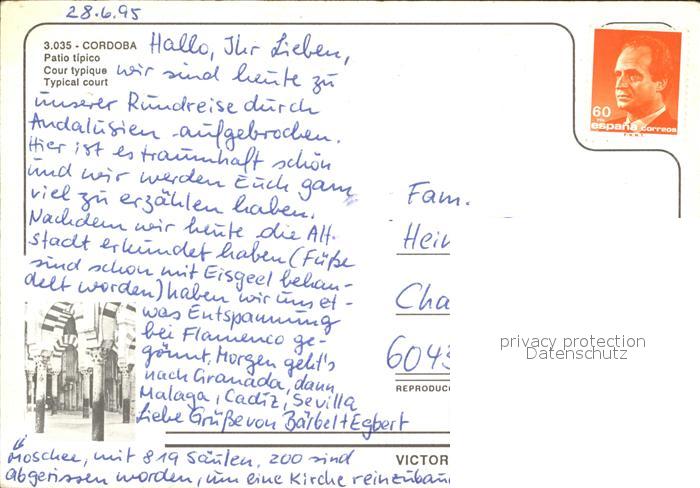 28.6.95
3.035 - CORDOBA
Patio típico
Cour typique
Typical court
Hallo, Ihr Lieben,
wir sind heute zu
unserer Rundreise durch
Andalusien aufgebrochen.
Hier ist es traumhaft schön
und wir werden Euch ganz
viel zu erzählen haben.
Nachdem wir heute die Alt-
stadt erkundet haben (Füße
sind schon mit Eisgeel behan-
delt worden) haben wir uns et-
was Entspannung
bei Flamenco ge-
gönnt. Morgen geht's
nach Granada, dann
Malaga, Cadiz, Sevilla
Liebe Grüße von Bärbel + Egbert
Moschee, mit 819 Säulen. 200 sind
abgerissen worden, um eine Kirche reinzubau
60
españa correos
Fam.
Hein
Cha
6043
REPRODUC
VICTOR
privacy protection
Datenschutz